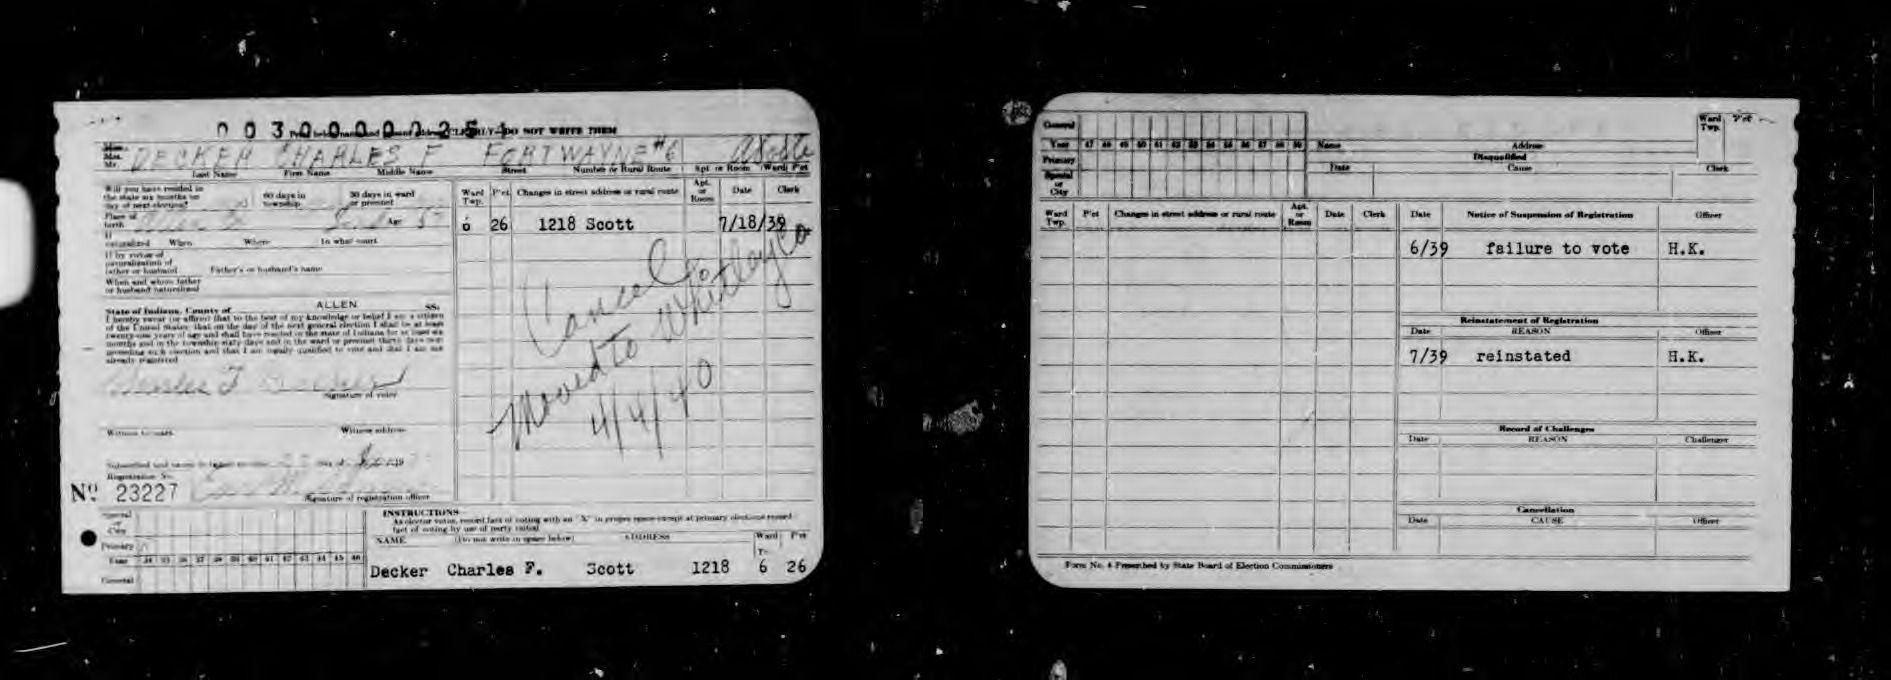 0030000025
DO NOT WRITE THEM
Mrs.
Mr. DECKER CHARLES F FORT WAYNE #6
Last Name First Name Middle Name Street Number or Rural Route Apt or Room Ward P'ct
Will you have resided in the state six months on day of next election? 60 days in township 30 days in ward or precinct
Place of birth Age
If naturalized When Where In what court
If by virtue of naturalization of father or husband Father's or husband's name
When and where father or husband naturalized
ALLEN
State of Indiana, County of SS:
I hereby swear (or affirm) that to the best of my knowledge or belief I am a citizen
of the United States; that on the day of the next general election I shall be at least
twenty-one years of age and shall have resided in the state of Indiana for at least six
months and in the township sixty days and in the ward or precinct thirty days next
preceding such election and that I am legally qualified to vote and that I am not
already registered
Charles F Decker
Signature of voter
Witness to mark Witness address
Subscribed and sworn to before me this day of
Registration No.
No. 23227
Signature of registration officer
Ward Twp. P'ct Changes in street address or rural route Apt. or Room Date Clerk
6 26 1218 Scott 7/18/39
Cancel
Moved to Whitley Co
4/4/40
Special or City
Primary
Year 34 35 36 37 38 39 40 41 42 43 44 45 46
General
INSTRUCTIONS
As elector votes, record fact of voting with an "X" in proper space except at primary elections record
fact of voting by use of party initial
NAME (Do not write in space below) ADDRESS Ward P'ct
Decker Charles F. Scott 1218 6 26
General
Year 47 48 49 50 51 52 53 54 55 56 57 58 59
Primary
Special or City
Name Address Ward Twp. P'ct
Disqualified
Date Cause Clerk
Ward Twp. P'ct Changes in street address or rural route Apt. or Room Date Clerk
Date Notice of Suspension of Registration Officer
6/39 failure to vote H.K.
Reinstatement of Registration
Date REASON Officer
7/39 reinstated H.K.
Record of Challenges
Date REASON Challenger
Cancellation
Date CAUSE Officer
Form No. 4 Prescribed by State Board of Election Commissioners